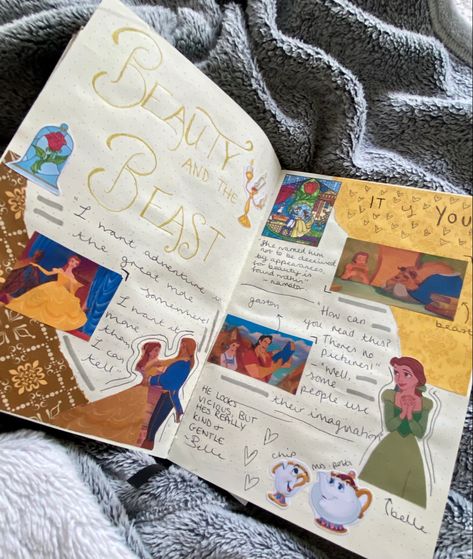 BEAUTY
AND THE
BEAST
"I want adventure in
the great wide
somewhere!
I want it
more
than
I can
tell.
HE LOOKS
VICIOUS, BUT
HES REALLY
KIND &
GENTLE
Belle
"She warned him
not to be deceived
by appearances
for beauty is
found within"
- narrator
gaston
IT IS YOU
beast
"How can
you read this?
There's no
pictures!"
- "Well,
some
people use
their imagination
chip
mrs. potts
belle